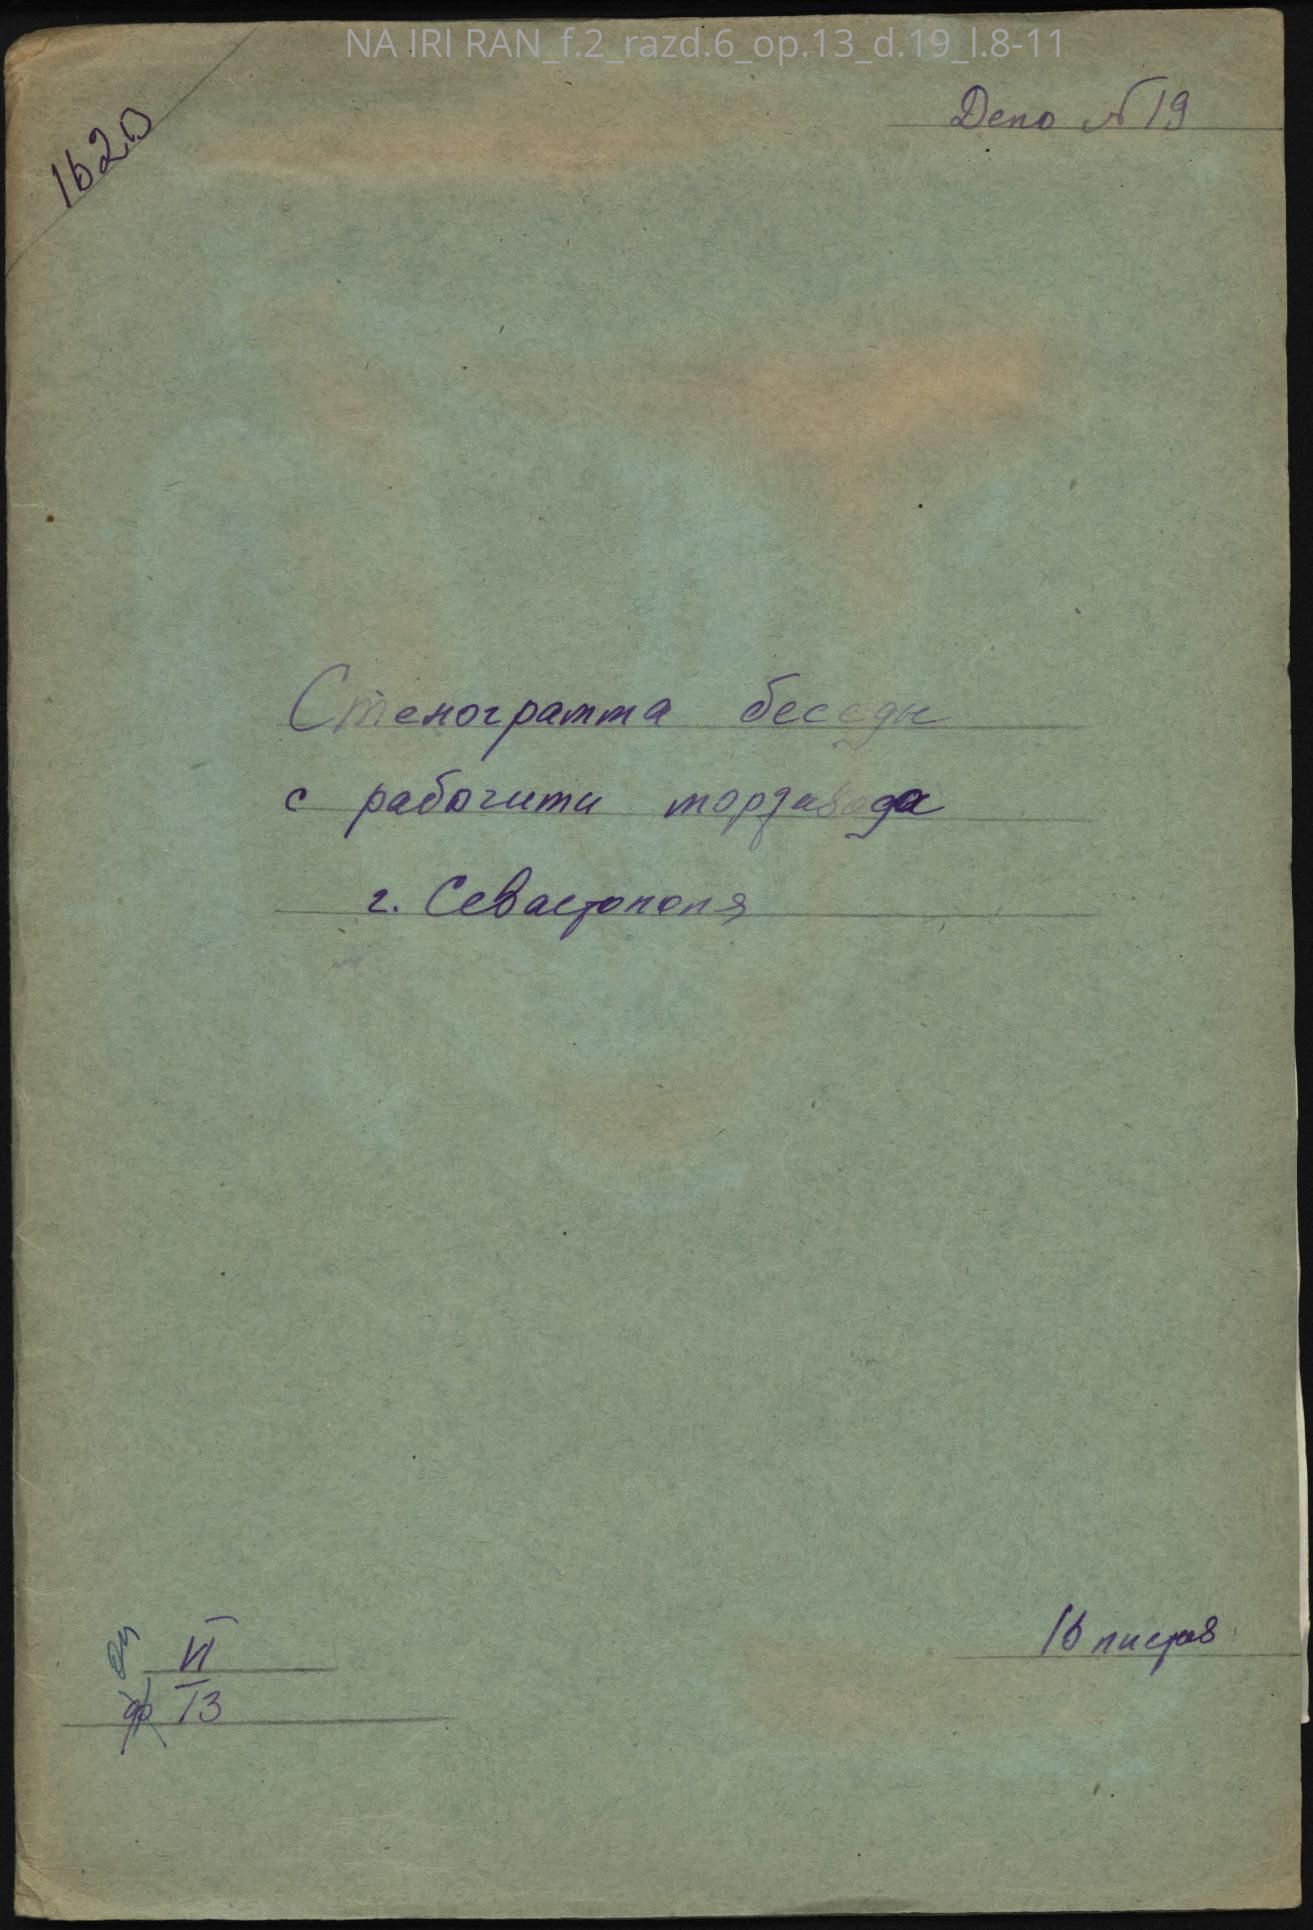 NA IRI RAN_f.2_razd.6_op.13_d.19_l.8-11
1620
Дело № 19
Стенограмма беседы
с рабочими морзавода
г. Севастополя
VI
13
16 листов